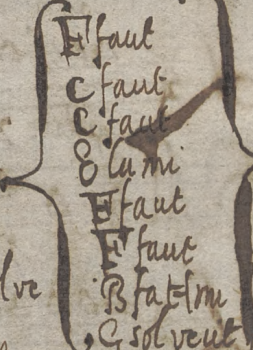 F faut
C faut
C faut
E lami
F faut
F faut
lve B fa♮mi
G sol re ut